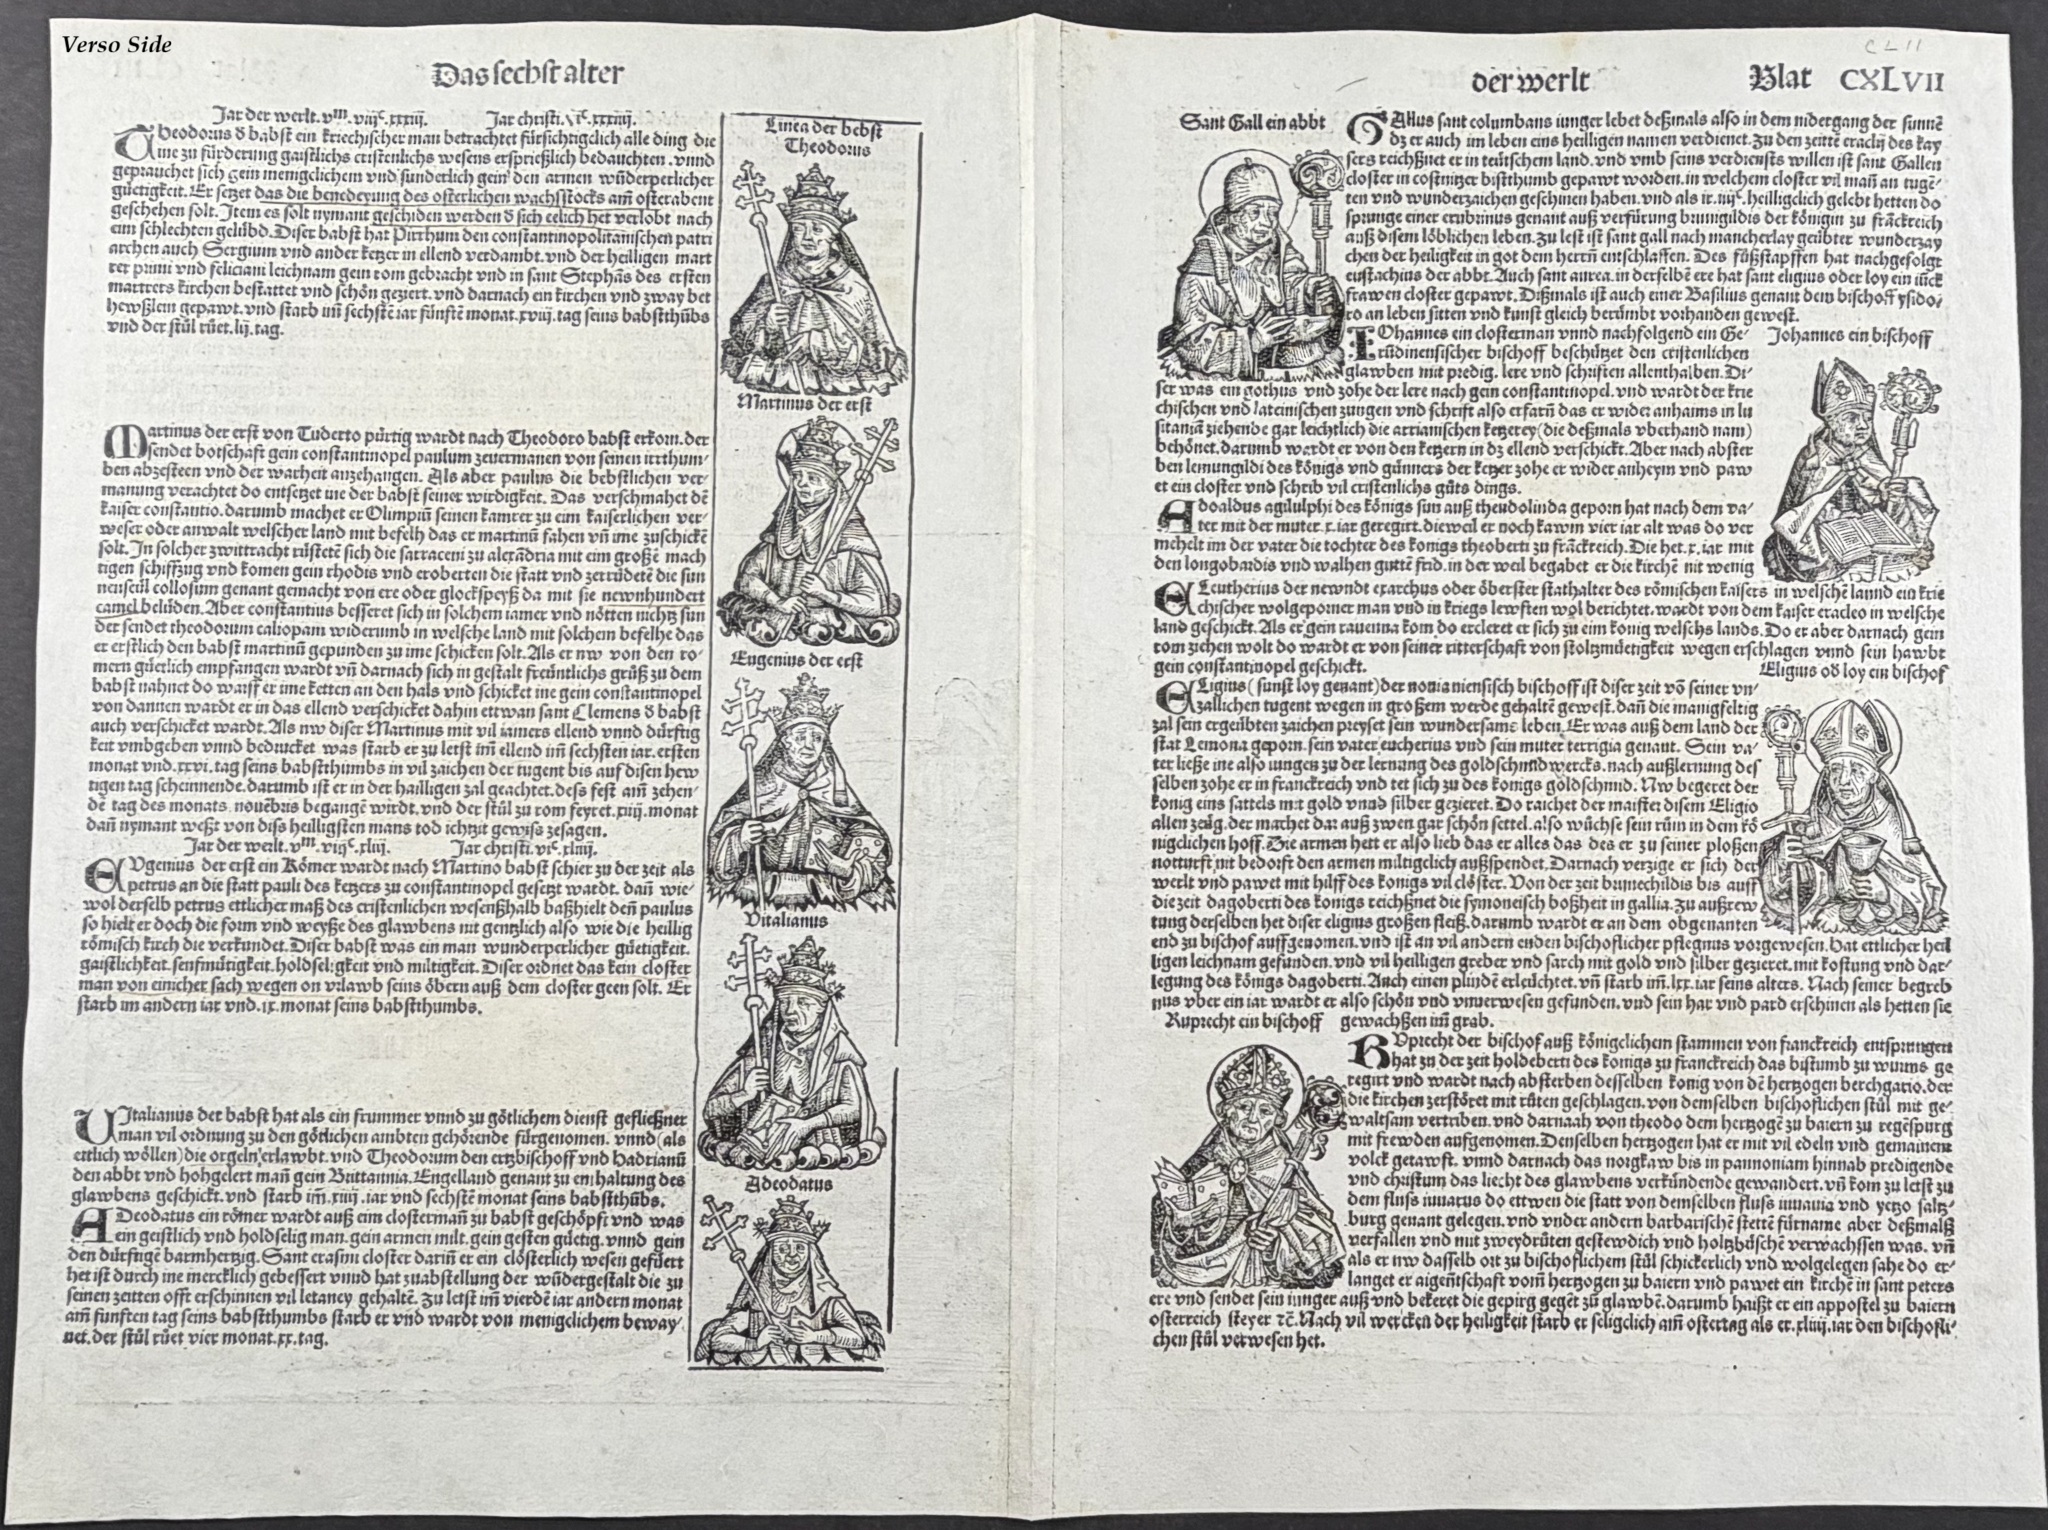 Verso Side
Das sechst alter
Jar der werlt.vᵐ.viijᶜ.xxxiij. Jar christi.viᶜ.xxxiiij.
Theodorus ð babst ein kriechischer man betrachtet fürsichtigclich alle ding die
ime zu fürderung gaistlichs cristenlichs wesens ersprießlich bedauchten.vnnd
geprauchet sich gein menigclichem vnd sunderlich gein den armen wũderperlicher
güetigkeit. Er setzet das die benedeyung des osterlichen wachsstocks am̃ osterabent
geschehen solt. Jtem es solt nymant geschiden werden ð sich eelich het verlobt nach
eim schlechten gelübd. Diser babst hat Pirrhum den constantinopolitanischen patri
archen auch Sergium vnd ander ketzer in ellend verdambt.vnd der heiligen mart
rer primi vnd feliciani leichnam gein rom gebracht vnd in sant Stephãs des ersten
martrers kirchen bestattet vnd schön geziert.vnd darnach ein kirchen vnd zway bet
hewßlein gepawt.vnd starb im̃ sechstẽ iar fünftẽ monat.xviij.tag seins babstthũbs
vnd der stůl růet.lij.tag.
Linea der bebst
Theodorus
Martinus der erst
Martinus der erst von Tuderto pürtig wardt nach Theodoro babst erkorn.der
sendet botschaft gein constantinopel paulum zeuermanen von seinen irrthum-
ben abzesteen vnd der warheit anzehangen. Als aber paulus die bebstlichen ver-
manung verachtet do entsetzet ine der babst seiner wirdigkeit. Das verschmahet dẽ
kaiser constantio.darumb machet er Olimpiũ seinen kamrer zu eim kaiserlichen ver-
weser oder anwalt welscher land mit befelh das er martinũ fahen vñ ime zuschickẽ
solt. Jn solcher zwittracht rüstetẽ sich die sarraceni zu alexãdria mit eim großẽ mach
tigen schiffzug vnd komen gein rhodis vnd eroberten die statt vnd zerrüdetẽ die sun
nenseül collosum genant gemacht von ere oder glockspeyß da mit sie newnhundert
camel belüden. Aber constantius besseret sich in solchem iamer vnd nötten nichtz sun
der sendet theodorum caliopam widerumb in welsche land mit solchem befelhe das
er erstlich den babst martinũ gepunden zu ime schicken solt. Als er nw von den ro-
mern gůetlich empfangen wardt vñ darnach sich in gestalt freüntlichs grůß zu dem
babst nahnet do warff er ime ketten an den hals vnd schicket ine gein constantinopel
von dannen wardt er in das ellend verschicket dahin ettwan sant Clemens ð babst
auch verschicket wardt. Als nw diser Martinus mit vil iamers ellend vnnd dürftig
keit vmbgeben vnnd bedrucket was starb er zu letst im̃ ellend im̃ sechsten iar.ersten
monat vnd.xxvi.tag seins babstthumbs in vil zaichen der tugent bis auf disen hew
tigen tag scheinnende.darumb ist er in der hailligen zal geachtet.dess fest am̃ zehen-
dẽ tag des monats.nouẽbris begangẽ wirdt.vnd der stůl zu rom feyret.xiij.monat
dañ nymant weßt von diss heilligsten mans tod ichtzit gewiss zesagen.
Jar der werlt.vᵐ.viijᶜ.xliij. Jar christi.viᶜ.xliiij.
Eugenius der erst
Eugenius der erst ein Römer wardt nach Martino babst schier zu der zeit als
petrus an die statt pauli des ketzers zu constantinopel gesetzt wardt. dañ wie-
wol derselb petrus ettlicher maß des cristenlichen wesenßhalb baßhielt deñ paulus
so hielt er doch die form vnd weyße des glawbens nit gentzlich also wie die heillig
römisch kirch die verkundet. Diser babst was ein man wunderperlicher güetigkeit.
gaistlichkeit.senfmütigkeit.holdseligkeit vnd miltigkeit. Diser ordnet das kein closter
man von einicher sach wegen on vrlawb seins öbern auß dem closter geen solt. Er
starb im andern iar vnd.ix.monat seins babstthumbs.
Vitalianus
Vitalianus der babst hat als ein frummer vnnd zu götlichem dienst gefließner
man vil ordnung zu den götlichen ambten gehörende fürgenomen. vnnd (als
ettlich wöllen) die orgeln erlawbt.vnd Theodorum den ertzbischoff vnd Hadrianũ
den abbt vnd hohgelert mañ gein Brittannia. Engelland genant zu enthaltung des
glawbens geschickt.vnd starb im̃.xiiij.iar vnd sechstẽ monat seins babstthũbs.
Adeodatus
Adeodatus ein römer wardt auß eim clostermañ zu babst geschöpft vnd was
ein geistlich vnd holdselig man.gein armen milt.gein gesten güetig.vnnd gein
den dürftigẽ barmhertzig. Sant erasmi closter dariñ er ein clösterlich wesen gefüert
het ist durch ine mercklich gebessert vnnd hat zuabstellung der wũdergestalt die zu
seinen zeitten offt erschinnen vil letaney gehaltẽ. Zu letst im̃ vierdẽ iar andern monat
am̃ funften tag seins babstthumbs starb er vnd wardt von menigclichem beway-
net.der stůl růet vier monat.xx.tag.
CLII
der werlt Blat CXLVII
Sant Gall ein abbt
GAllus sant columbans iunger lebet deßmals also in dem nidergang der sunnẽ
dz er auch im leben eins heilligen namen verdienet. Zu den zeittẽ eraclij des kay
sers reichßnet er in teütschem land.vnd vmb seins verdiensts willen ist sant Gallen
closter in costnitzer bistthumb gepawt worden.in welchem closter vil mañ an tugẽ-
ten vnd wunderzaichen geschinen haben.vnd als ir.iiijᶜ.heilligclich gelebt hetten do
sprunge einer erubrinus genant auß verfürung brunigildis der königin zu frãckreich
auß disem löblichen leben. Zu lest ist sant gall nach mancherlay geübter wunderzay
chen der heiligkeit in got dem herrñ entschlaffen. Des fůßstapffen hat nachgefolgt
eustachius der abbt. Auch sant aurea.in derselbẽ ere hat sant eligius oder loy ein iũck
frawen closter gepawt. Dißmals ist auch einer Basilius genant dem bischoff ysido-
ro an leben sitten vnd kunst gleich berůmbt vorhanden gewest.
Johannes ein bischoff
IOhannes ein closterman vnnd nachfolgend ein Ge-
rũdinensischer bischoff beschützet den cristenlichen
glawben mit predig. lere vnd schriften allenthalben. Di-
ser was ein gothus vnd zohe der lere nach gein constantinopel.vnd wardt der krie
chischen vnd lateinischen zungen vnd schrift also erfarñ das er wider anhaims in lu
sitaniã ziehende gar leichtlich die arrianischen ketzerey (die deßmals vberhand nam)
behönet.darumb wardt er von den ketzern in dz ellend verschickt. Aber nach abster
ben lemungildi des königs vnd günners der ketzer zohe er wider anheym vnd paw
et ein closter vnd schrib vil cristenlichs gůts dings.
Adoaldus agilulphi des königs sun auß theudolinda geporn hat nach dem va-
ter mit der muter.x.iar geregirt.dieweil er noch kawm vier iar alt was do ver
mehelt im der vater die tochter des konigs theoberti zu frãckreich. Die het.x.iar mit
den longobardis vnd walhen gutẽ frid.in der weil begabet er die kirchẽ nit wenig
Eleutherius der newndt exarchus oder öberster stathalter des römischen kaisers in welschẽ lannd ein krie
chischer wolgeporner man vnd in kriegs lewften wol berichtet.wardt von dem kaiser eracleo in welsche
land geschickt. Als er gein rauenna kom do ercleret er sich zu eim konig welschs lands. Do er aber darnach gein
rom ziehen wolt do wardt er von seiner ritterschaft von stoltzmůetigkeit wegen erschlagen vnnd sein hawbt
gein constantinopel geschickt. Eligius oð loy ein bischof
ELigius (sunst loy genant) der nouiomensisch bischoff ist diser zeit võ seiner vn-
zallichen tugent wegen in großem werde gehaltẽ gewest.dañ die manigfeltig
zal sein ergeübten zaichen preyset sein wundersame leben. Er was auß dem land der
stat Lemona geporn.sein vater eucherius vnd sein muter terrigia genant. Sein va-
ter ließe ine also iungen zu der lernung des goldschmidwercks.nach außlernung des
selben zohe er in franckreich vnd tet sich zu des konigs goldschmid. Nw begeret der
konig eins sattels mit gold vnnd silber gezieret. Do raichet der maister disem Eligio
allen zeüg.der machet dar auß zwen gar schön settel.also wůchse sein rům in dem kö
nigclichen hoff. Die armen hett er also lieb das er alles das des er zu seiner ploßen
notturft nit bedorft den armen miltigclich außspendet. Darnach verzige er sich der
werlt vnd pawet mit hilff des konigs vil clöster. Von der zeit brunechildis bis auff
die zeit dagoberti des konigs reichßnet die symoneisch boßheit in gallia. Zu außrew
tung derselben het diser eligius großen fleiß.darumb wardt er an dem obgenanten
end zu bischof auffgenomen.vnd ist an vil andern enden bischoflicher pflegnus vorgewesen. Hat ettlicher heil
ligen leichnam gefunden.vnd vil heilligen greber vnd sarch mit gold vnd silber gezieret.mit kostung vnd dar-
legung des königs dagoberti. Auch einen plindẽ erleüchtet.vñ starb im̃.lxx.iar seins alters. Nach seiner begreb
nus vber ein iar wardt er also schön vnd vnuerwesen gefunden.vnd sein har vnd pard erschinen als hetten sie
Ruprecht ein bischoff gewachßen im̃ grab.
RVprecht der bischof auß königclichem stammen von franckreich entsprungen
hat zu der zeit holdeberti des konigs zu franckreich das bistumb zu wurms ge
regirt vnd wardt nach absterben desselben konig von dẽ hertzogen berchgario.der
die kirchen zerstöret mit růten geschlagen.von demselben bischoflichen stůl mit ge-
waltsam vertriben. vnd darnach von theodo dem hertzogẽ zu baiern zu regẽspurg
mit frewden aufgenomen. Denselben hertzogen hat er mit vil edeln vnd gemainem
volck getawft. vnnd darnach das norgkaw bis in pannoniam hinnab predigende
vnd christum das liecht des glawbens verkündende gewandert.vñ kom zu letst zu
dem fluss iuuarus do ettwen die statt von demselben fluss iuuauia vnd yetzo saltz-
burg genant gelegen.vnd vnder andern barbarischẽ stettẽ fürname aber deßmalß
verfallen vnd mit zweydrüten gestewdich vnd holtzbüschẽ verwachssen was. vñ
als er nw dasselb ort zu bischoflichem stůl schickerlich vnd wolgelegen sahe do er-
langet er aigẽtschaft vom̃ hertzogen zu baiern vnd pawet ein kirchẽ in sant peters
ere vnd sendet sein iunger auß vnd bekeret die gepirg gegẽt zů glawbẽ.darumb haißt er ein appostel zu baiern
osterreich steyer ꝛc̃. Nach vil wercken der heiligkeit starb er seligclich am̃ ostertag als er.xliiij.iar den bischofli-
chen stůl verwesen het.